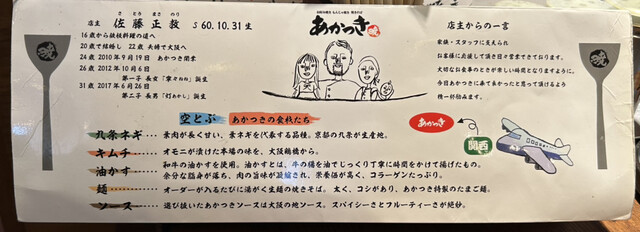 店主 佐藤正教 S 60.10.31 生
さとう まさのり
16歳から鉄板料理の道へ
20歳で結婚し 22歳 夫婦で大阪へ
24歳 2010年9月19日 あかつき開業
26歳 2012年10月6日
第一子 長女「寧々ねね」誕生
31歳 2017年6月26日
第二子 長男「灯あかし」誕生
お好み焼き もんじゃ焼き 焼きそば
あかつき
暁
店主からの一言
家族・スタッフに支えられ
お客様に応援して頂き日々営業できております。
大切なお食事のときが楽しい時間となりますように。
今日あかつきに来て良かったと思って頂けるよう
精一杯励みます。
空とぶ あかつきの食材たち
九条ネギ…葉肉が長く甘い、葉ネギを代表する品種。京都の九条が生産地。
キムチ…オモニが漬けた本場の味を、大阪鶴橋から。
油かす…和牛の油かすを使用。油かすとは、牛の腸を油でじっくり丁寧に時間をかけて揚げたもの。
余分な脂身が落ち、肉の旨味が凝縮され、栄養価が高く、コラーゲンたっぷり。
麺…オーダーが入るたびに湯がく生麺の焼きそば。太く、コシがあり、あかつき特製のたまご麺。
ソース…選び抜いたあかつきソースは大阪の地ソース。スパイシーさとフルーティーさが絶妙。
あかつき
関西